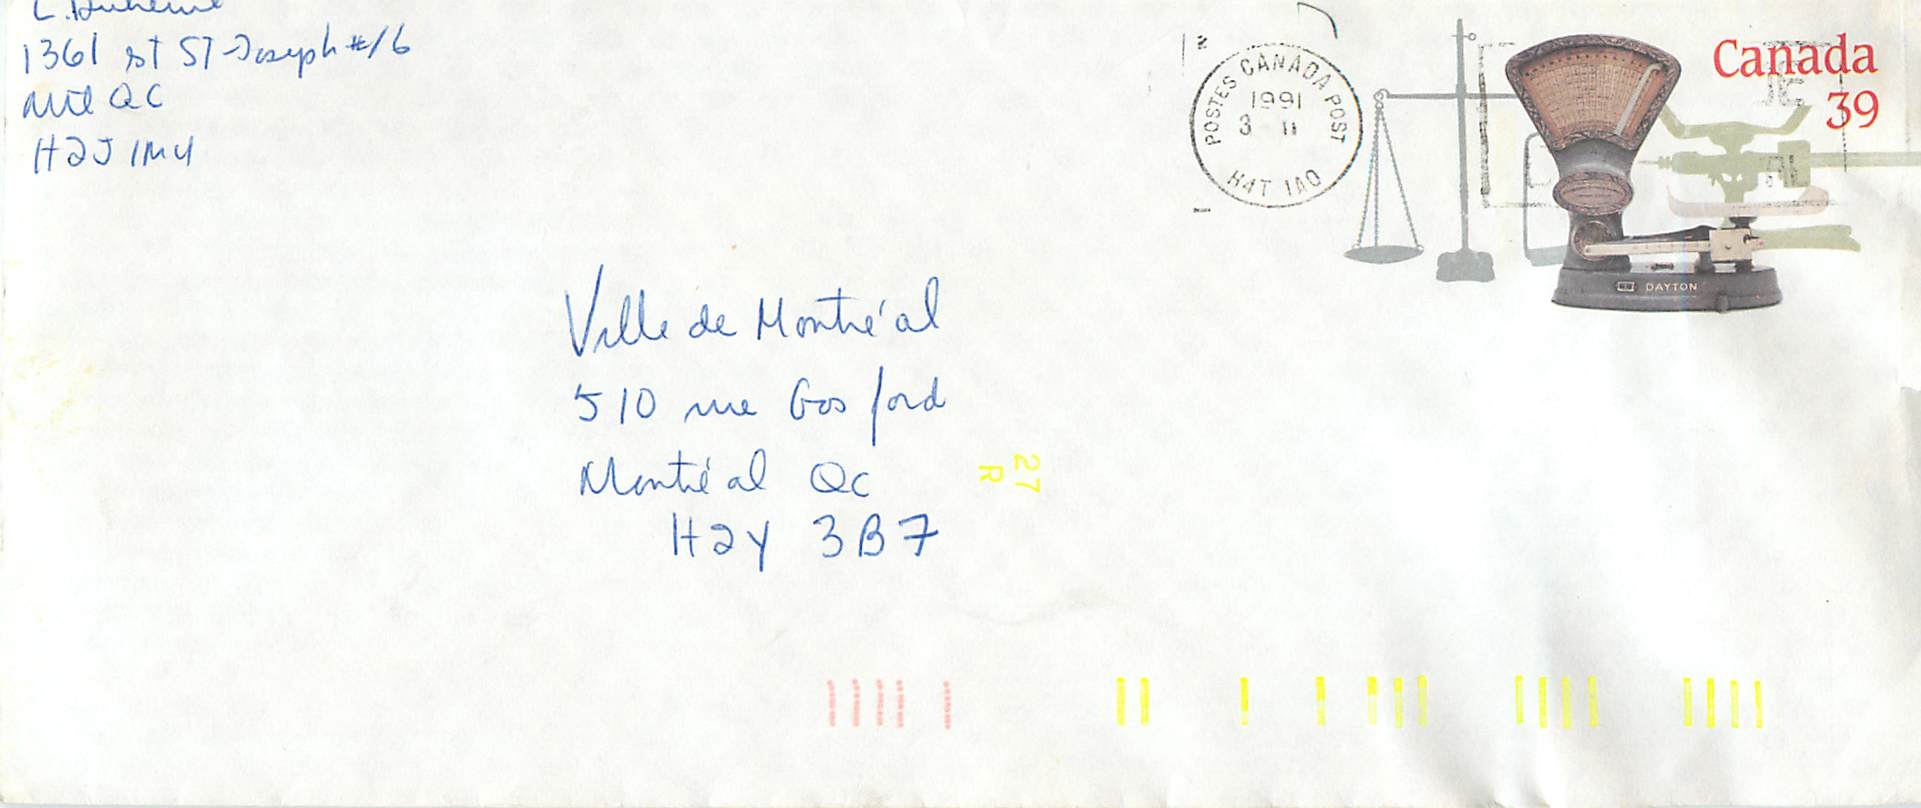 1361 st ST-Joseph #16
Mtl QC
H2J 1M4
POSTES CANADA POST
1991
3 II
H4T 1A0
Canada
39
DAYTON
Ville de Montréal
510 rue Gosford
Montréal Qc
H2Y 3B7
27
R